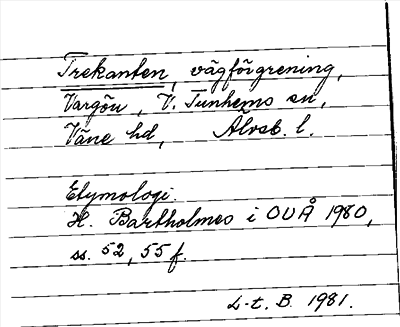 Trekanten, vägförgrening,
Vargön, V. Tunhems sn,
Väne hd, Älvsb. l.
Etymologi.
H. Bartholmes i OUÅ 1980,
ss. 52, 55 f.
L-t. B. 1981.